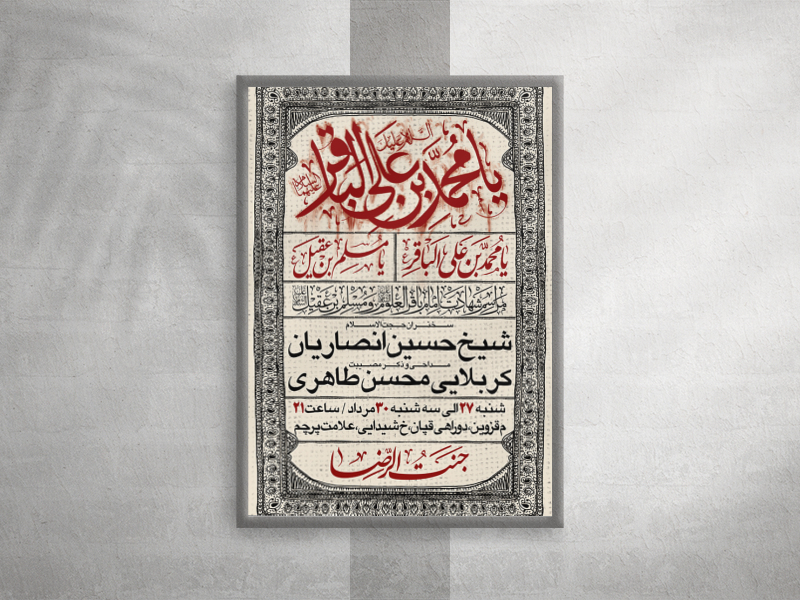 یا مُحَمَّدَ بنَ عَلیِ الباقر
السلام علیک
علیهما السلام
یا مُحمَّدَ بنَ عَلیِ الباقر
یا مُسلِمَ بنَ عَقیل
مراسم شهادت امام باقرالعلوم و مسلم بن عقیل
سخنران حجت‌الاسلام
شیخ حسین انصاریان
مداحی و ذکر مصیبت
کربلایی محسن طاهری
شنبه ۲۷ الی سه شنبه ۳۰ مرداد / ساعت ۲۱
م قزوین، دوراهی قپان، خ شیدایی، علامت پرچم
جنتُ الرِّضا